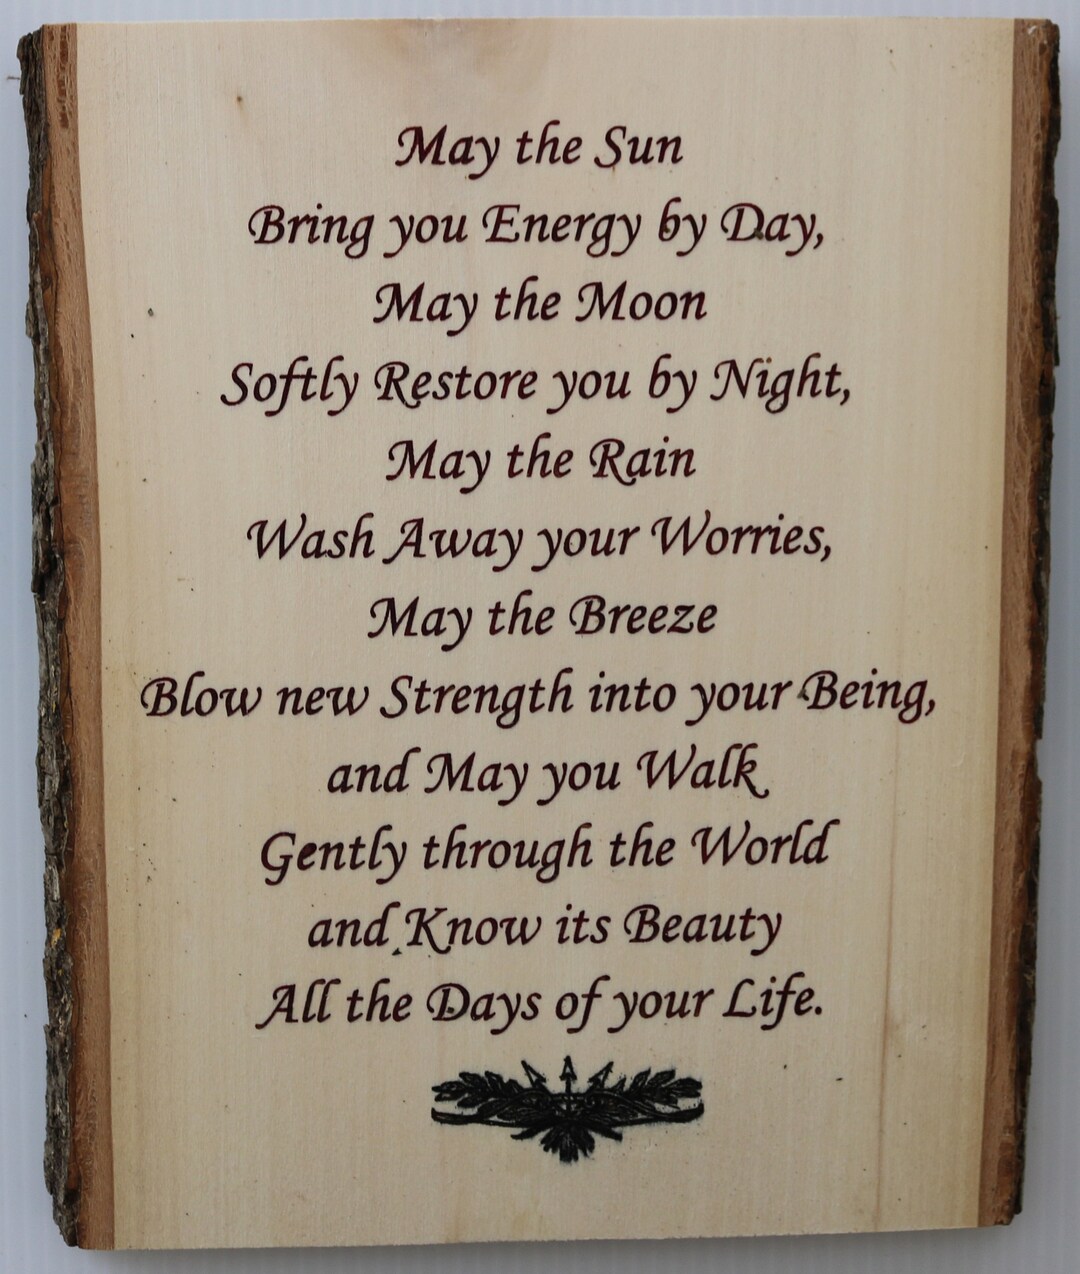 May the Sun
Bring you Energy by Day,
May the Moon
Softly Restore you by Night,
May the Rain
Wash Away your Worries,
May the Breeze
Blow new Strength into your Being,
and May you Walk
Gently through the World
and Know its Beauty
All the Days of your Life.